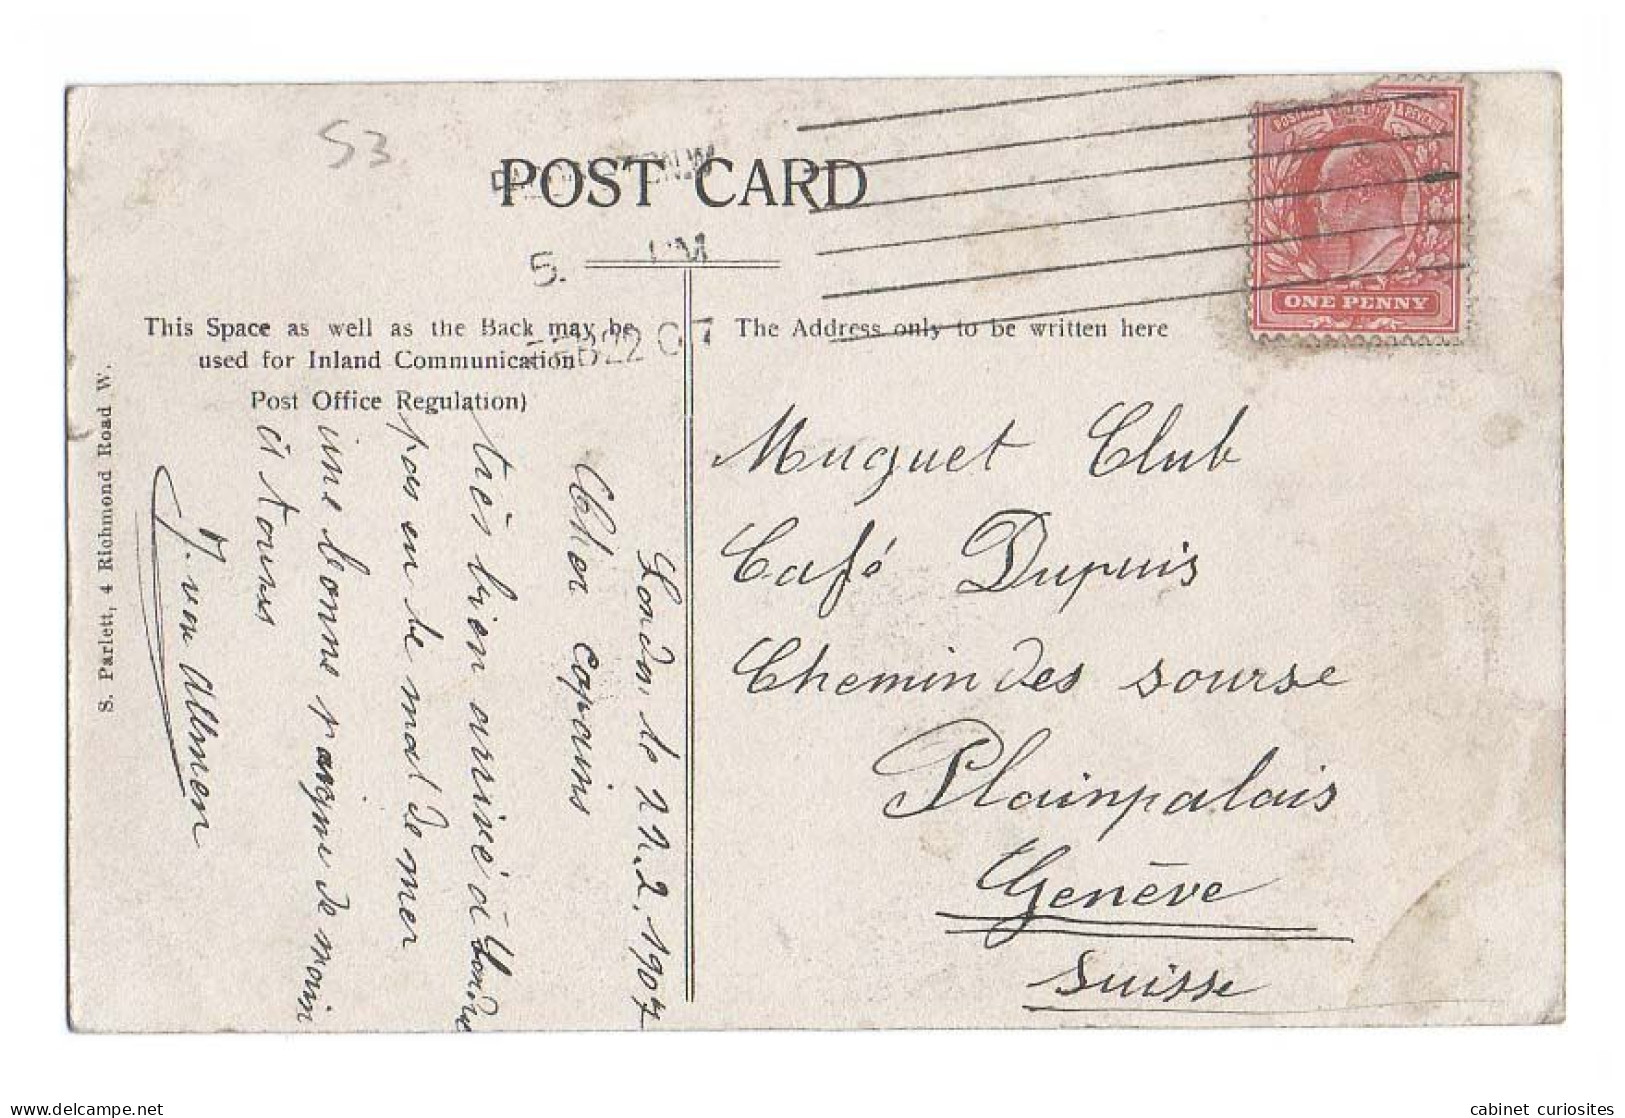 53
POST CARD
5. PM
FEB 22 07
This Space as well as the Back may be
used for Inland Communication
Post Office Regulation)
The Address only to be written here
POSTAGE & REVENUE
ONE PENNY
S. Parlett, 4 Richmond Road W.
Londr. le 22.2.1907
Cher copains
très bien arrivé à Londre
pas eu le mal de mer
une bonne poigne de main
à tous
J. von Allmen
Muguet Club
Café Dupuis
Chemin des sourse
Plainpalais
Genève
Suisse
cabinet curiosites